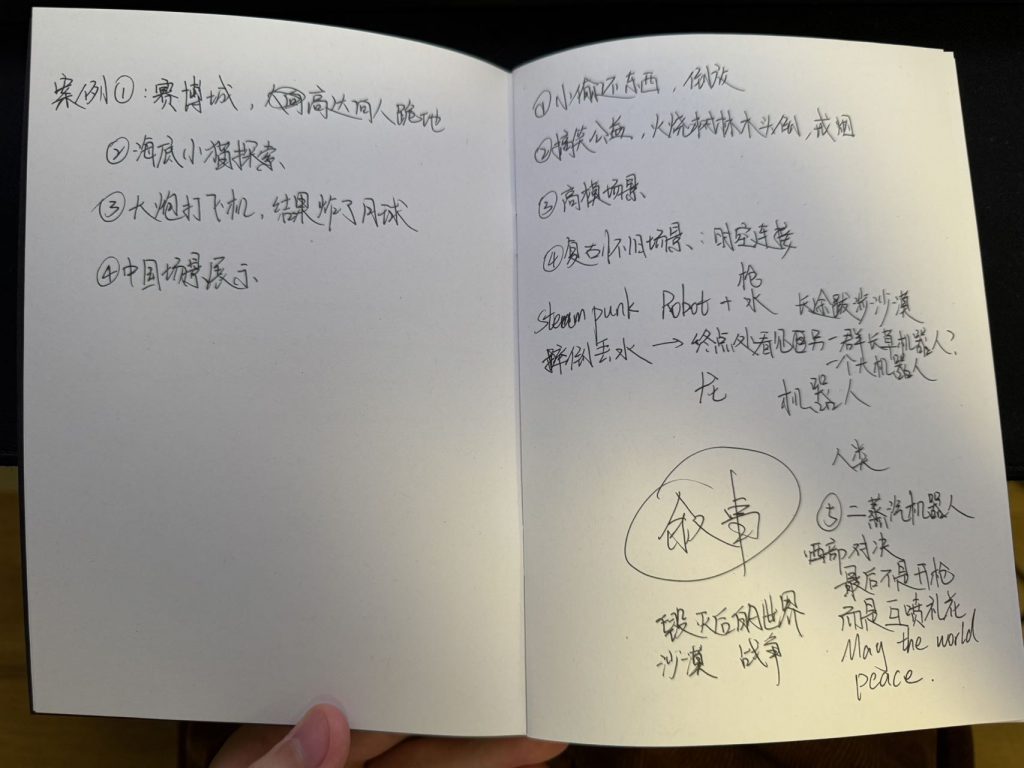 案例①:赛博城,高达向人跪地
②海底小猫探索
③大炮打飞机,结果炸了月球
④中国场景展示
①小偷还东西,倒放
②搞笑公益,火烧树林木头倒,戒烟
③高模场景
④复古怀旧场景:时空连接
枪
steam punk Robot + 水 长途跋涉沙漠
摔倒丢水 → 终点处看见另一群长草机器人?
一个大机器人
龙 机器人
人类
叙事
⑤二蒸汽机器人
西部对决
最后不是开枪
而是互喷礼花
May the world
peace.
毁灭后的世界
沙漠 战争